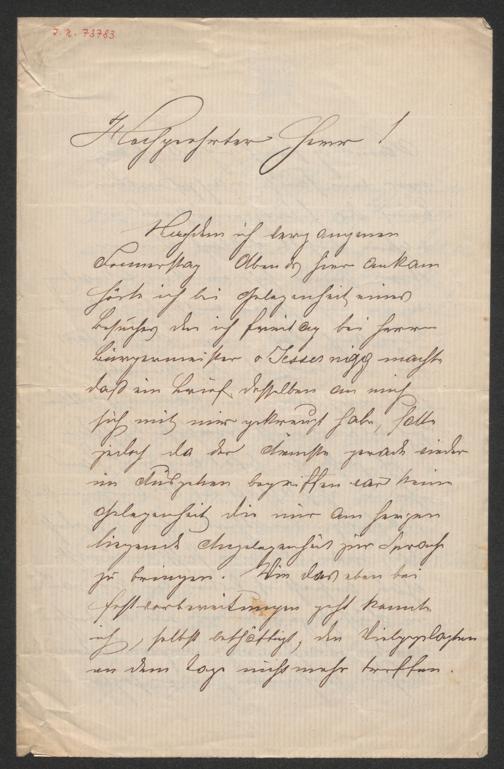 J. N. 73783
Hochgeehrter Herr!
Nachdem ich vergangenen
Donnerstag Abends hier ankam
hörte ich bei Gelegenheit eines
Besuches den ich Freitag bei Herrn
Bürgermeister v Tessernigg machte
daß ein Brief desselben an mich
sich mit mir gekreuzt habe, hatte
jedoch da der Ärmste gerade wieder
im Ausgehen begriffen war keine
Gelegenheit die mir am Herzen
liegende Angelegenheit zur Sprache
zu bringen. Wie das eben bei
Festvorbereitungen geht konnte
ich, selbst bethätigt, den Vielgeplagten
an dem Tage nicht mehr treffen.